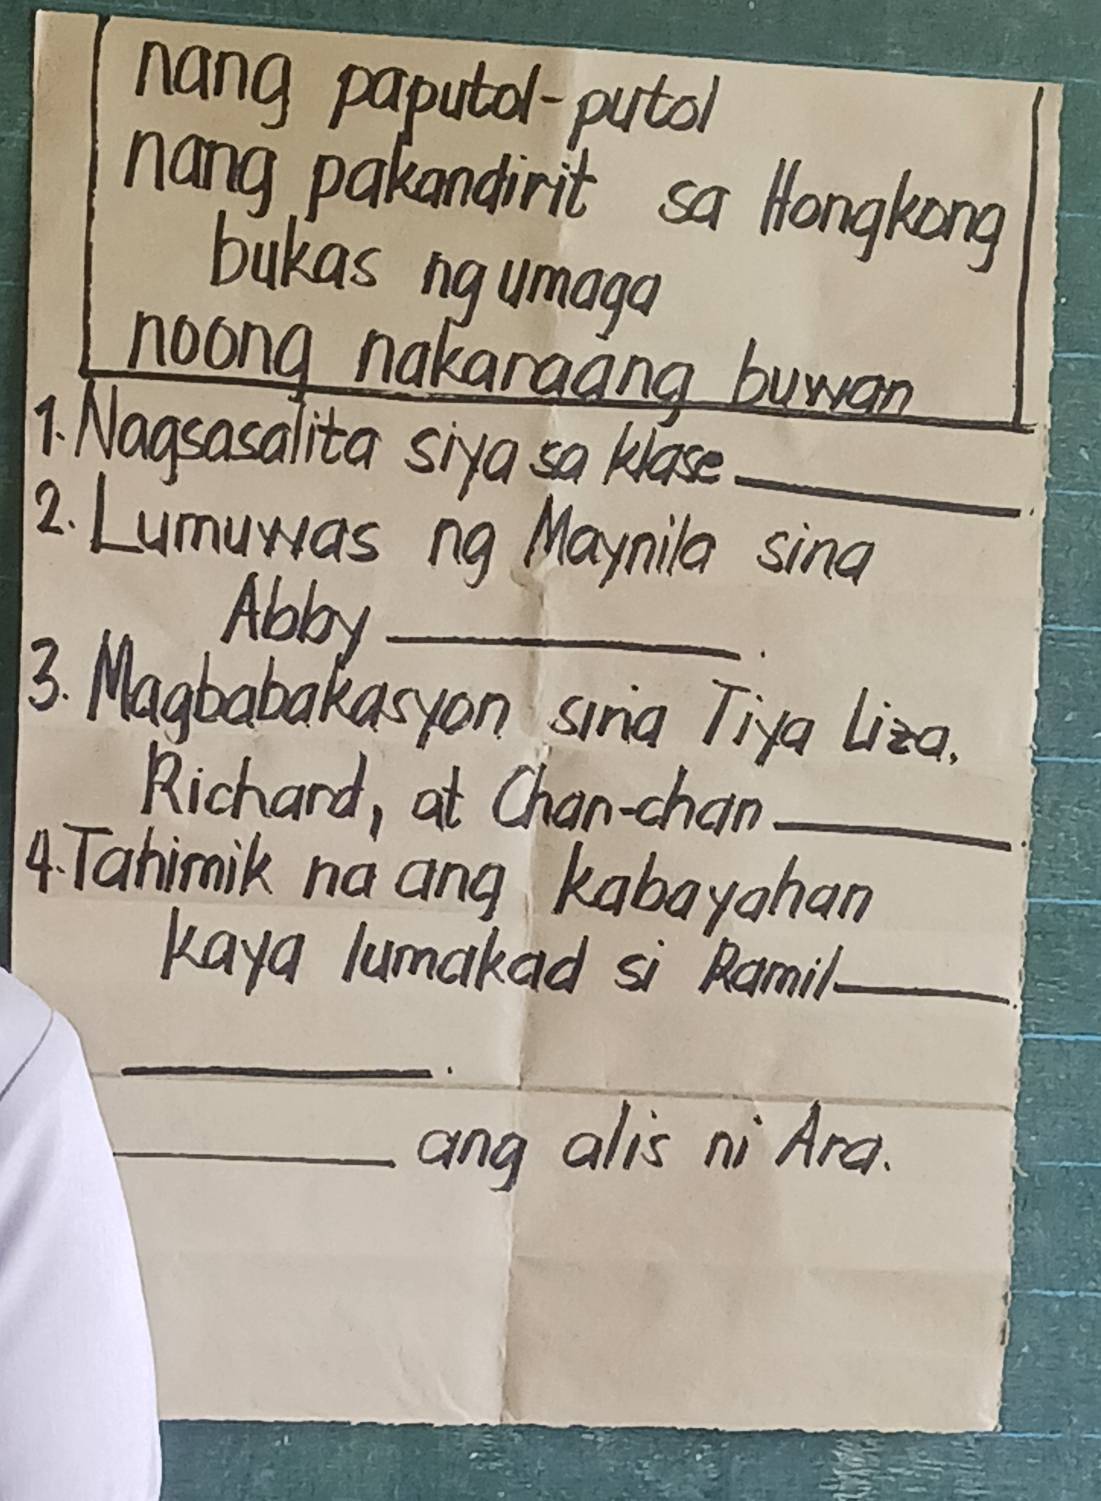 nang paputol-putol
nang pakandirit sa Hongkong
bukas ng umaga
noong nakaraang buwan
1. Nagsasalita siya sa klase ________.
2. Lumuwas ng Maynila sina
Abby ________.
3. Magbabakasyon sina Tiya Liza,
Richard, at Chan-chan ________.
4. Tahimik na ang kabayahan
kaya lumakad si Ramil ________.
________.
________ ang alis ni Ara.